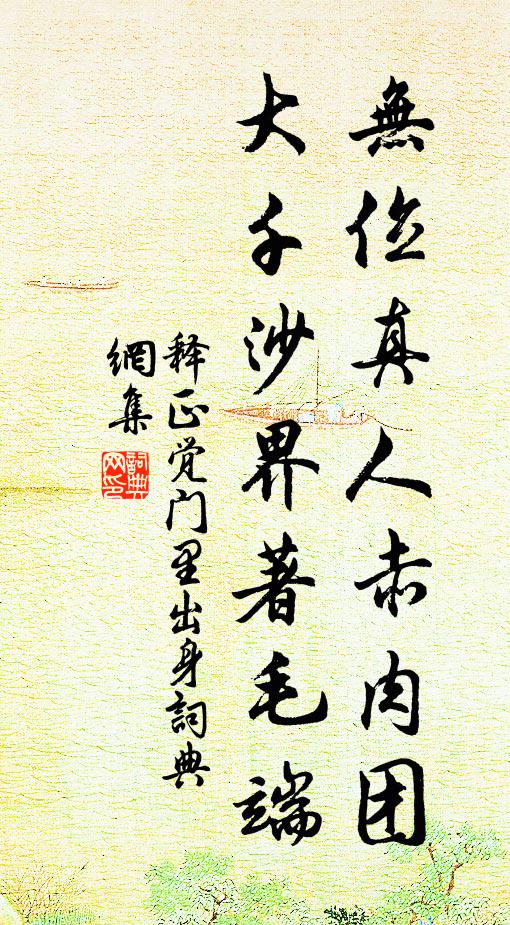 無位真人赤肉团
大千沙界著毛端
释正觉门里出身詞典
網集
詞典網印